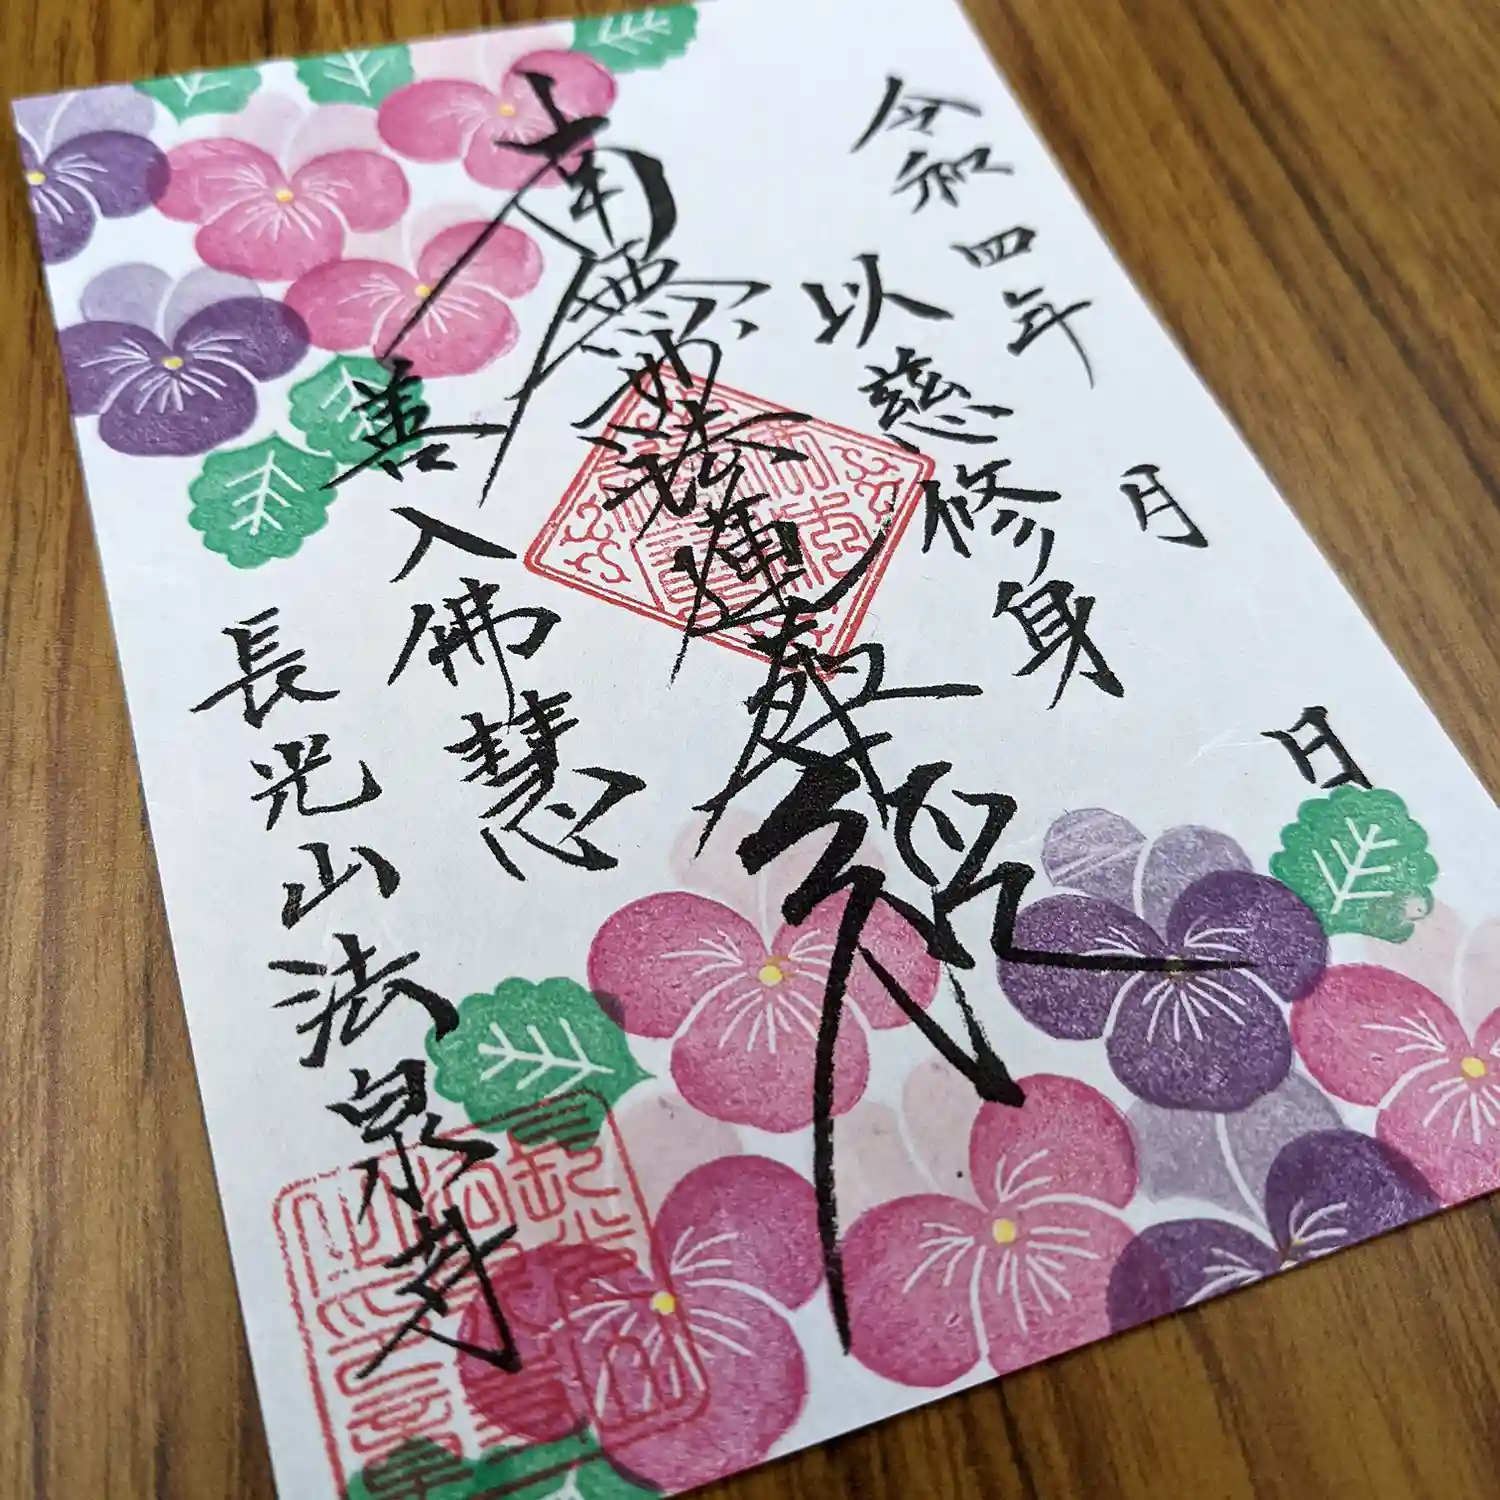 令和四年 月 日
以慈修身
南無妙法蓮華経
善入佛慧
長光山法泉寺